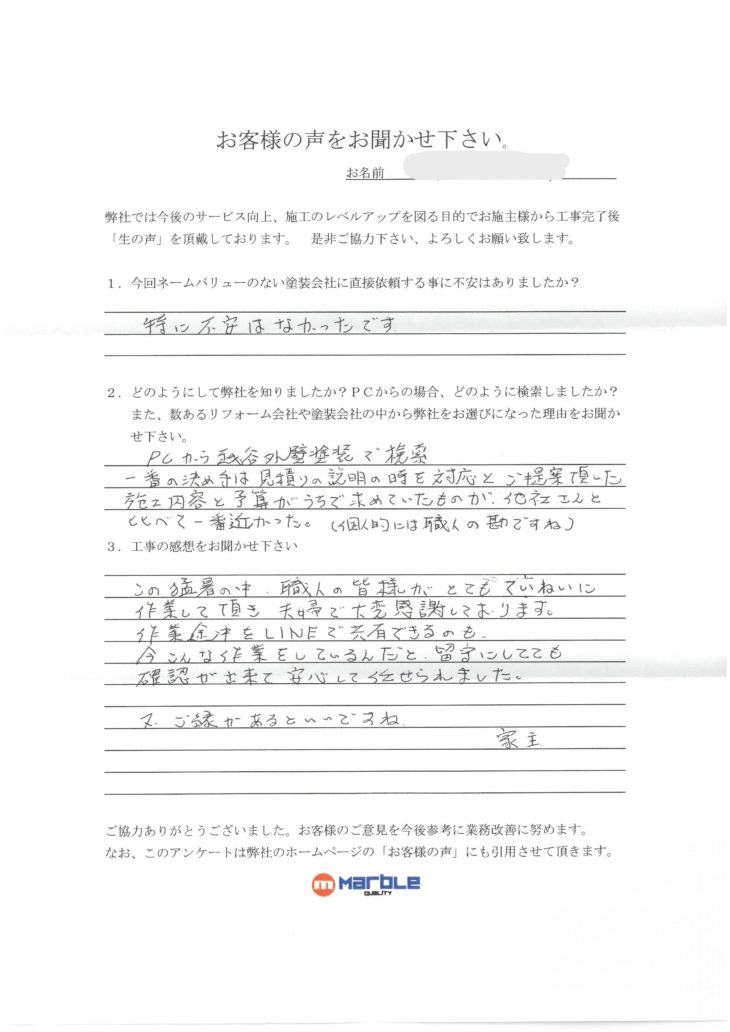 お客様の声をお聞かせ下さい。
お名前
弊社では今後のサービス向上、施工のレベルアップを図る目的でお施主様から工事完了後
「生の声」を頂戴しております。 是非ご協力下さい、よろしくお願い致します。
1．今回ネームバリューのない塗装会社に直接依頼する事に不安はありましたか？
特に不安はなかったです
2．どのようにして弊社を知りましたか？ＰＣからの場合、どのように検索しましたか？
また、数あるリフォーム会社や塗装会社の中から弊社をお選びになった理由をお聞か
せ下さい。
PCから越谷外壁塗装で検索
一番の決め手は見積りの説明の時を対応とご提案頂いた
施工内容と予算がうちで求めていたものが、他社さんと
比べて一番近かった。(個人的には職人の勘ですね)
3．工事の感想をお聞かせ下さい
この猛暑の中、職人の皆様がとてもていねいに
作業して頂き 夫婦で大変感謝しております。
作業途中をLINEで共有できるのも、
今こんな作業をしているんだと、留守にしてても
確認が出来て安心して任せられました。
又、ご縁があるといいですね。
家主
ご協力ありがとうございました。お客様のご意見を今後参考に業務改善に努めます。
なお、このアンケートは弊社のホームページの「お客様の声」にも引用させて頂きます。
m MarBLe
QUALITY